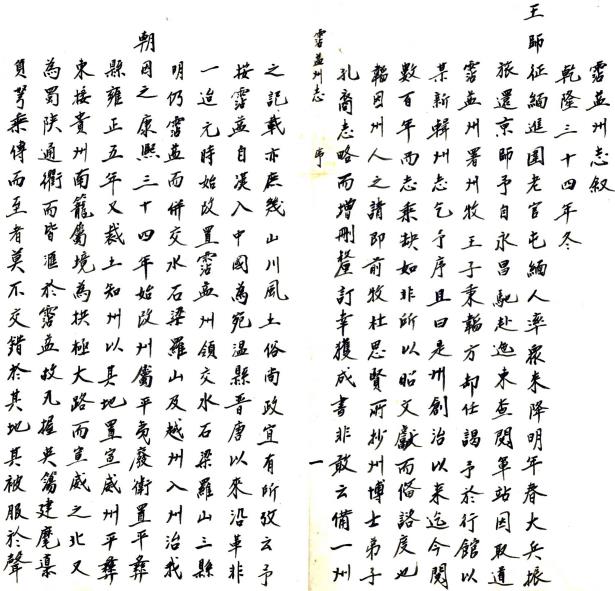 霑益州志叙
乾隆三十四年冬
王師征緬進圍老官屯緬人率衆来降明年春大兵振
旅還京師予自永昌馳赴迤東查閱軍站因取道
霑益州署州牧王子秉韜方却仕謁予於行館以
某新輯州志乞予序且曰是州創治以来迄今閱
數百年而志乘缺如非所以昭文獻而俻諮度也
韜因州人之請即前牧杜思賢所抄州博士弟子
孔裔志略而增刪釐訂幸獲成書非敢云備一州
霑益州志 序 一
之記載亦庶幾山川風土俗尚政宜有所攷云予
按霑益自漢入中國為宛温縣晉唐以來沿革非
一迨元時始改置霑益州領交水石梁羅山三縣
明仍霑益而併交水石梁羅山及越州入州治我
朝因之康熙三十四年始改州屬平夷廢衛置平彝
縣雍正五年又裁土知州以其地置宣威州平彝
東接貴州南籠屬境為拱極大路而宣威之北又
為蜀陝通衢而皆滙於霑益故凡握兵籥建麾纛
負弩乘傳而至者莫不交錯於其地其被服於聲